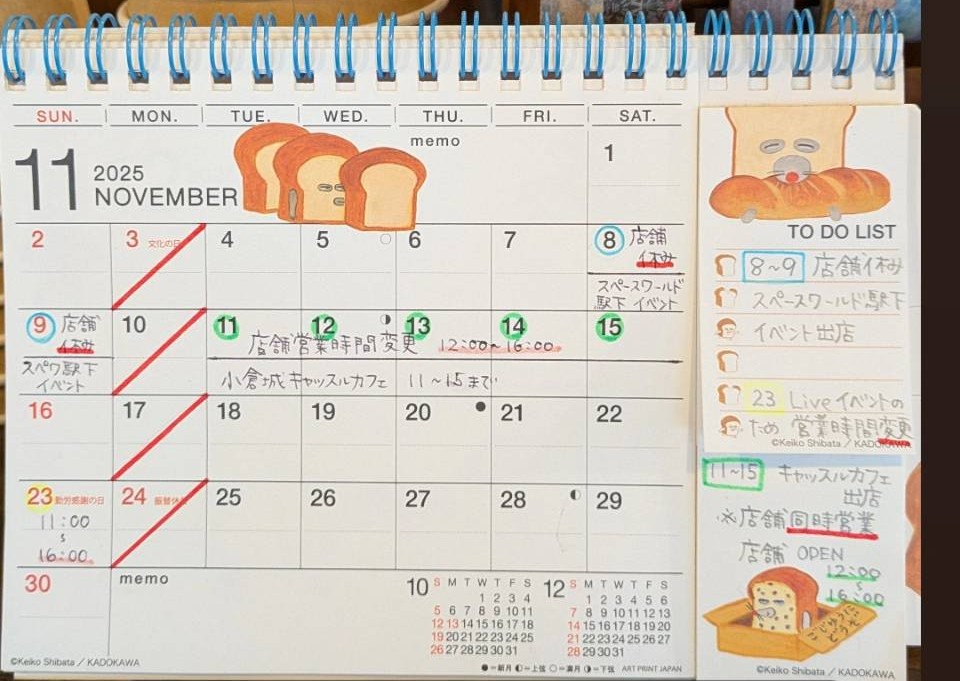 SUN. MON. TUE. WED. THU. FRI. SAT.
11 2025 NOVEMBER
memo
1
2 3 文化の日 4 5 6 7 8 店舗休み
スペースワールド駅下 イベント
9 店舗休み 10 11 12 13 14 15
店舗営業時間変更 12:00~16:00
スペワ駅下イベント
小倉城キャッスルカフェ 11~15まで
16 17 18 19 20 21 22
23 勤労感謝の日 24 振替休日 25 26 27 28 29
11:00
~
16:00
30 memo
10 S M T W T F S
1 2 3 4
5 6 7 8 9 10 11
12 13 14 15 16 17 18
19 20 21 22 23 24 25
26 27 28 29 30 31
12 S M T W T F S
1 2 3 4 5 6
7 8 9 10 11 12 13
14 15 16 17 18 19 20
21 22 23 24 25 26 27
28 29 30 31
©Keiko Shibata / KADOKAWA
●=新月 ◐=上弦 ○=満月 ◑=下弦 ART PRINT JAPAN
TO DO LIST
8~9 店舗休み
スペースワールド駅下
イベント出店
23 Liveイベントの
ため 営業時間変更
©Keiko Shibata / KADOKAWA
11~15 キャッスルカフェ
出店
※店舗同時営業
店舗 OPEN
12:00
~
16:00
ごじゆうに
どうぞ
©Keiko Shibata / KADOKAWA